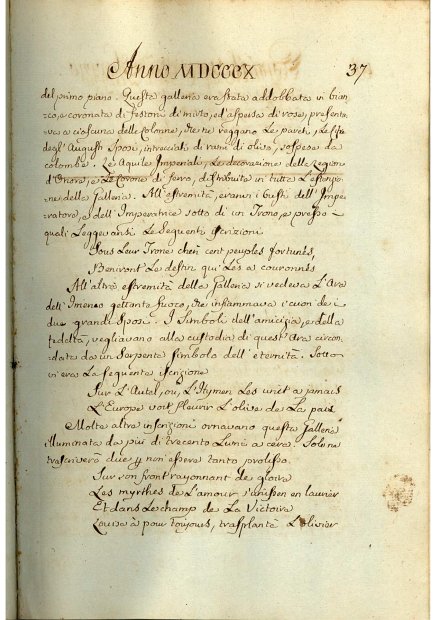 Anno MDCCCX 37
del primo piano. Questa galleria era stata addobbata in bian
co, e coronata di festoni di mirto, ed aspersa di rose, presenta
va a ciascuna delle colonne, che ne reggano le pareti, le cifre
degl' Augusti Sposi, intrecciati di rami di oliva, sospese da
colombe. Le Aquile Imperiali, le decorazione delle Legion
d'Onore, e le Corone di ferro, distribuite in tutta l'estensio
ne della Galleria. All' estremità, eranvi i busti dell' Impe
ratore, e dell' Imperatrice sotto di un Trono, e presso
quali Leggevansi le seguenti iscrizioni
Sous Leur Trone cheri cent peuples fortunés,
Beniront Le destin qui les a couronnés
All' altra estremità della Galleria si vedeva L'Ara
dell' Imeneo gettante fuoco, che infiammava i cuori dei
due grandi Sposi. I Simboli dell' amicizia, e della
fedeltà, vegliavano alla custodia di quest' Ara circon
data da un serpente simbolo dell' eternità. Sotto
vi era La seguente iscrizione
Sur L'Autel, ou, L'Hymen Les unit a jamais
L'Europe voit fleurir L'olive de La paix
Molte altre inscrizioni ornavano questa Galleria
illuminata da più di trecento Lumi a cera. Solo ne
trascriverò due non essere tanto prolisso.
Sur son front rayonnant de gloire
Les myrthes de L'amour s'unissen en laurier
Et dans Le champ de La Victoire
Louise à pour toujous, trasplanté L'olivier